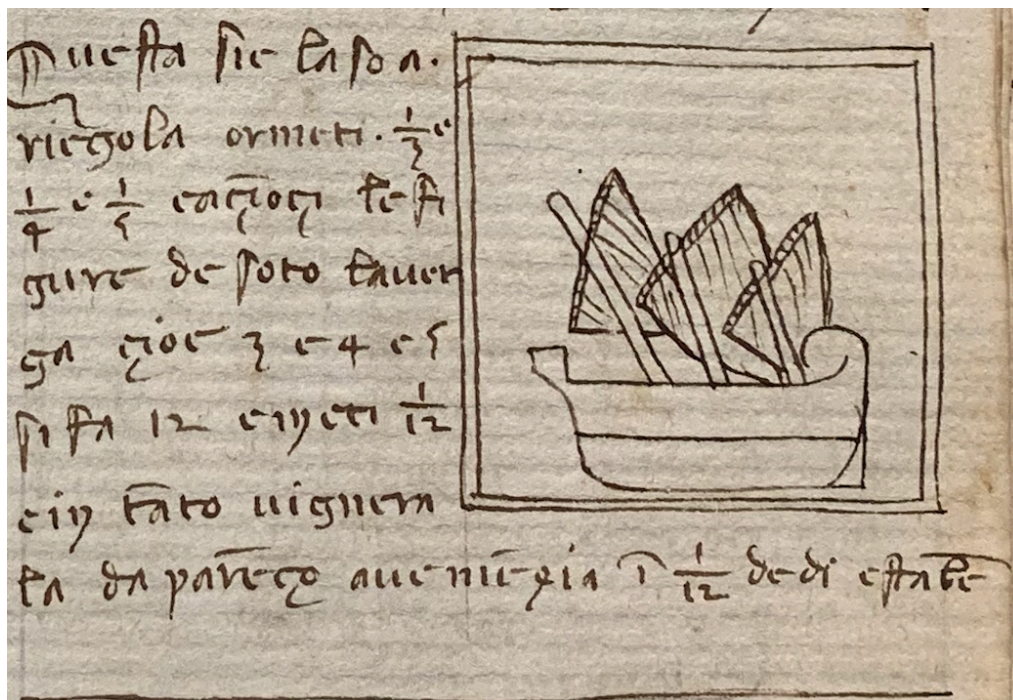 Questa sie la soa
riegola ormeti. 1/3 e
1/4 e 1/5 e açioçi le fi
gure de soto la ver
ga çioe 3 e 4 e 5
si fa 12 e meti 1/12
e in tãto vignera
la da parẽço a venẽxia ĩ 1/12 de di e sta bẽ